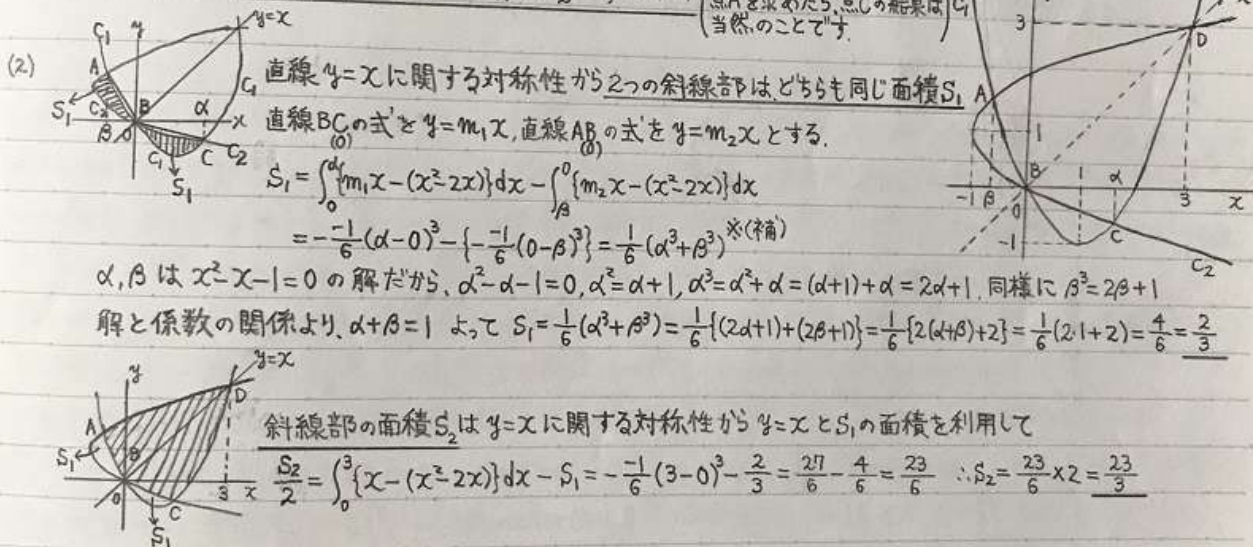 点Aを求めたら、点Cの結果は
当然のことです.
(2)
C₁ y y=x
A
S₁ C₂ B α C₁
β 0 x
C₁ C C₂
S₁
直線y=xに関する対称性から2つの斜線部は、どちらも同じ面積S₁
直線BCの式を y=m₁x, 直線ABの式を y=m₂x とする.
(0) (0)
S₁=∫₀^α{m₁x-(x²-2x)}dx-∫_β^0{m₂x-(x²-2x)}dx
=-\frac{-1}{6}(α-0)³-{-\frac{-1}{6}(0-β)³}=\frac{1}{6}(α³+β³) ※(補)
α,βは x²-x-1=0 の解だから、α²-α-1=0, α²=α+1, α³=α²+α=(α+1)+α=2α+1, 同様に β³=2β+1
解と係数の関係より、α+β=1 よって S₁=\frac{1}{6}(α³+β³)=\frac{1}{6}{(2α+1)+(2β+1)}=\frac{1}{6}{2(α+β)+2}=\frac{1}{6}(2・1+2)=\frac{4}{6}=\frac{2}{3}
y y=x
D
A
S₁ B
0 3 x
C
S₁
斜線部の面積S₂は y=x に関する対称性から y=x とS₁の面積を利用して
\frac{S₂}{2}=∫₀³{x-(x²-2x)}dx-S₁=-\frac{-1}{6}(3-0)³-\frac{2}{3}=\frac{27}{6}-\frac{4}{6}=\frac{23}{6} ∴S₂=\frac{23}{6}×2=\frac{23}{3}
C₁
3
D
A
1
B 1 α
-1 β 0 3 x
-1 C
C₂